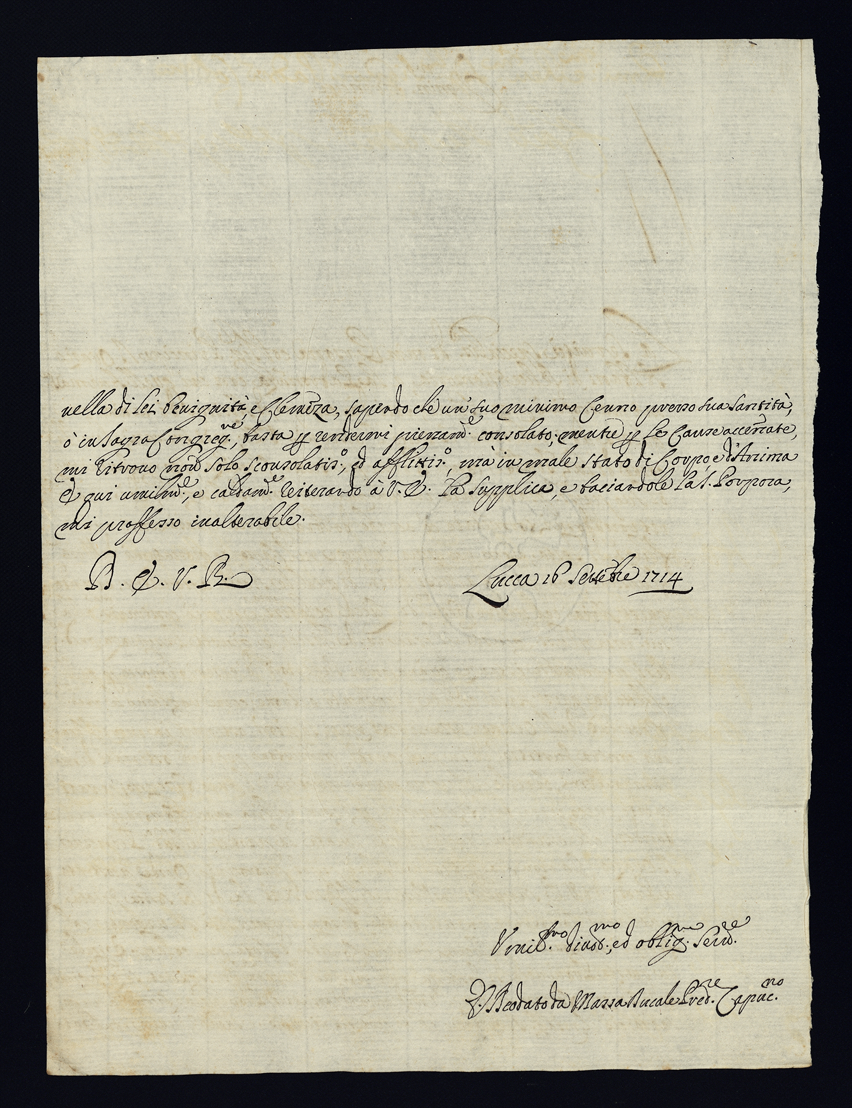 nella di lei benignità, e Clemẽza, sapendo che un' suo minimo Cenno presso sua Santità,
ò in Sagra Congreg.ne, basta p rendermi pienam.e consolato, mentre p le Cause accẽnate,
mi ritrovo nõn solo sconsolatis.o, ed afflittis.o, mà in male stato di Corpo, e d'Anima
E qui umilm.e, e caldam.e reiterando à V. E. la Supplica, e baciandole la S. Porpora,
mi professo inalterabile.
D. E. V. R.
Lucca 16 Settẽbre 1714
Umil.mo divot.mo, ed oblig.mo Serv.e
F. Deodato da Massa Ducale Pred.re Capuc.no